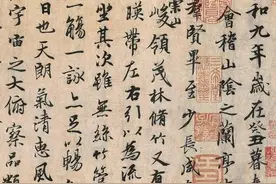 和九年歲在癸丑暮
會稽山陰之蘭亭
羣賢畢至少長咸
崇山
峻領茂林脩竹又有
暎帶左右引以為流
坐其次雖無絲竹管
一觴一詠亦足以暢
日也天朗氣清惠風
宇宙之大俯察品類